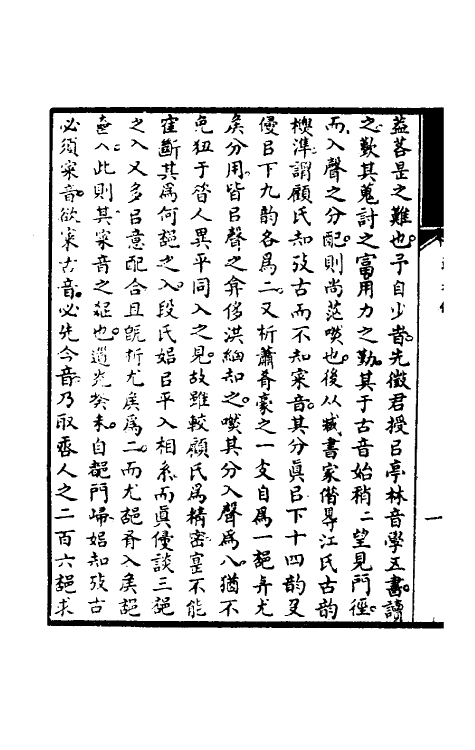 葢若是之難也予自少旹先徵君授㠯亭林音學五書讀
之歎其蒐討之富用力之勤其于古音始稍二望見門徑
而入聲之分配則尚茫嘫也後从臧書家借㝵江氏古韵
標準謂顧氏知攷古而不知宷音其分眞㠯下十四韵及
侵㠯下九韵各爲二又析蕭肴豪之一支自爲一部幷尤
矦分用皆㠯聲之弇侈洪細知之嘫其分入聲爲八猶不
免狃于昔人異平同入之見故雖較顧氏爲精密不能
寉斷其爲何部之入段氏始㠯平入相系而眞侵談三部
之入又多㠯意配合且旣析尤矦爲二而尤部有入矦部
無入此則其宷音之疏也道光癸未自都門歸始知攷古
必須宷音欲宷古音必先今音乃取唐人之二百六部求
一